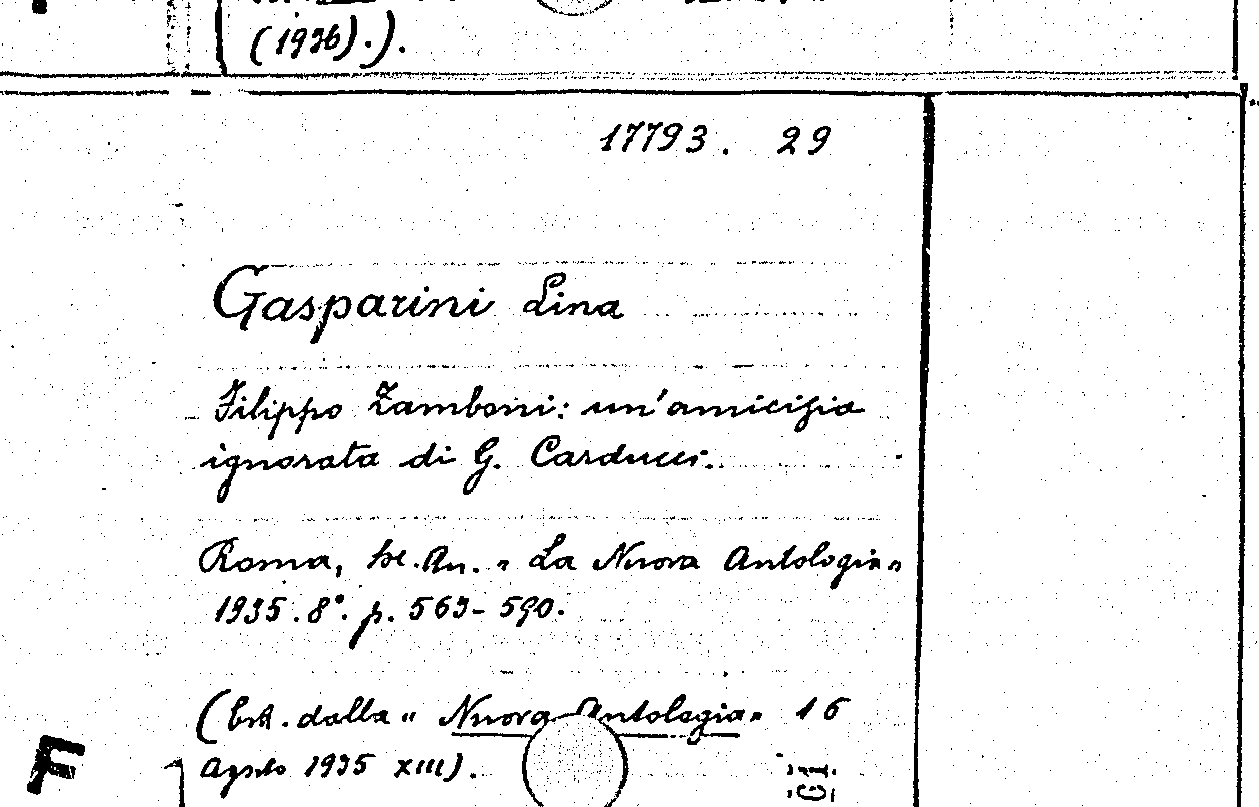 (1936).).
17793. 29
Gasparini Lina
Filippo Zamboni: un'amicizia
ignorata di G. Carducci.
Roma, Soc. An. "La Nuova Antologia"
1935. 8°. p. 563-590.
(Estr. dalla "Nuova Antologia" 16
Agosto 1935 XIII).
F